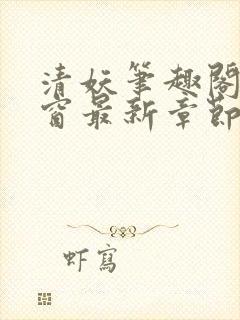 清妖筆趣閣
窗最新章節
虾寫